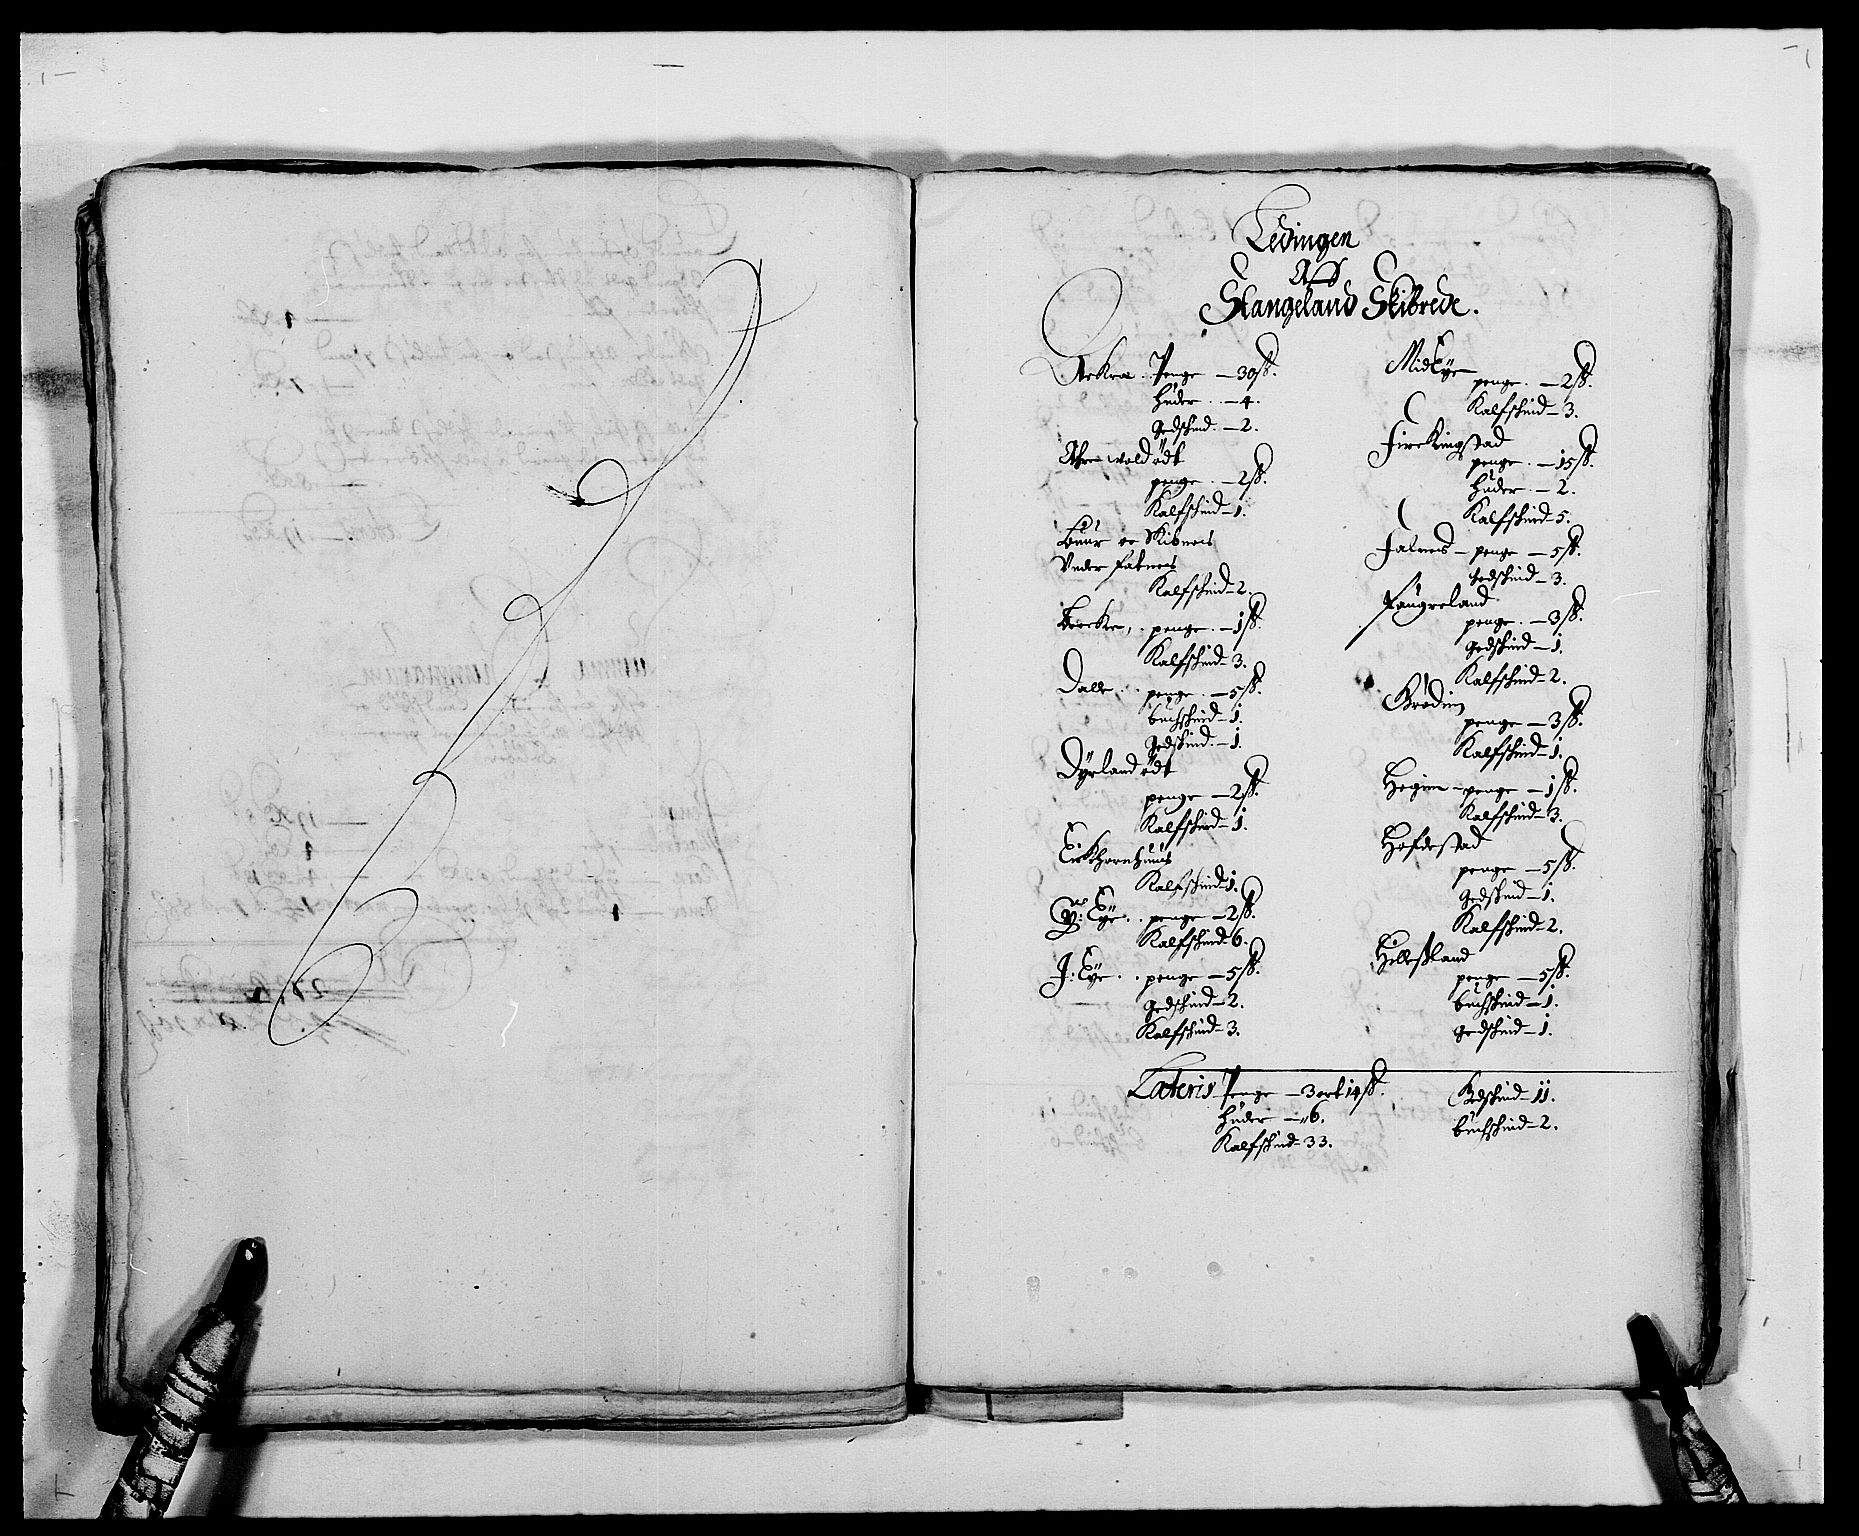 Ledingen
Aff
Stangeland Skibrede.
AcKra. Penge – 30 ß.
Huder – 4.
Gedskind – 2.
ødt
penge – 2 ß.
Kalfskind – 1.
Buur oc Skibnes
Under Falnes
Kalfskind – 2.
penge – 1 ß.
Kalfskind – 3.
Dalle penge – 5 ß.
buchskind – 1.
Gedskind – 1.
Dyrland ødt
penge – 2 ß.
Kalfskind – 1.
Kalfskind 1.
Eye penge – 2 ß.
Kalfskind – 6.
J: Eye penge – 5 ß.
Gedskind – 2.
Kalfskind – 3.
MidEye
penge – 2 ß.
Kalfskind – 3.
FireKingstad
penge – 15 ß.
Huder – 2.
Kalfskind – 5.
Falnes – penge – 5 ß.
Gedskind – 3.
Fangreland
penge – 3 ß.
Gedskind – 1.
Kalfskind – 2.
Grødim
penge – 3 ß.
Kalfskind – 1.
penge – 1 ß.
Kalfskind – 3.
Hofdestad
penge – 5 ß.
Gedskind – 1.
Kalfskind – 2.
Hillesland
penge – 5 ß.
buchskind – 1.
Gedskind – 1.
Lateris Penge – 3 ort 14 ß.
Huder – 6.
Kalfskind – 33.
Gedskind – 11.
buchskind – 2.